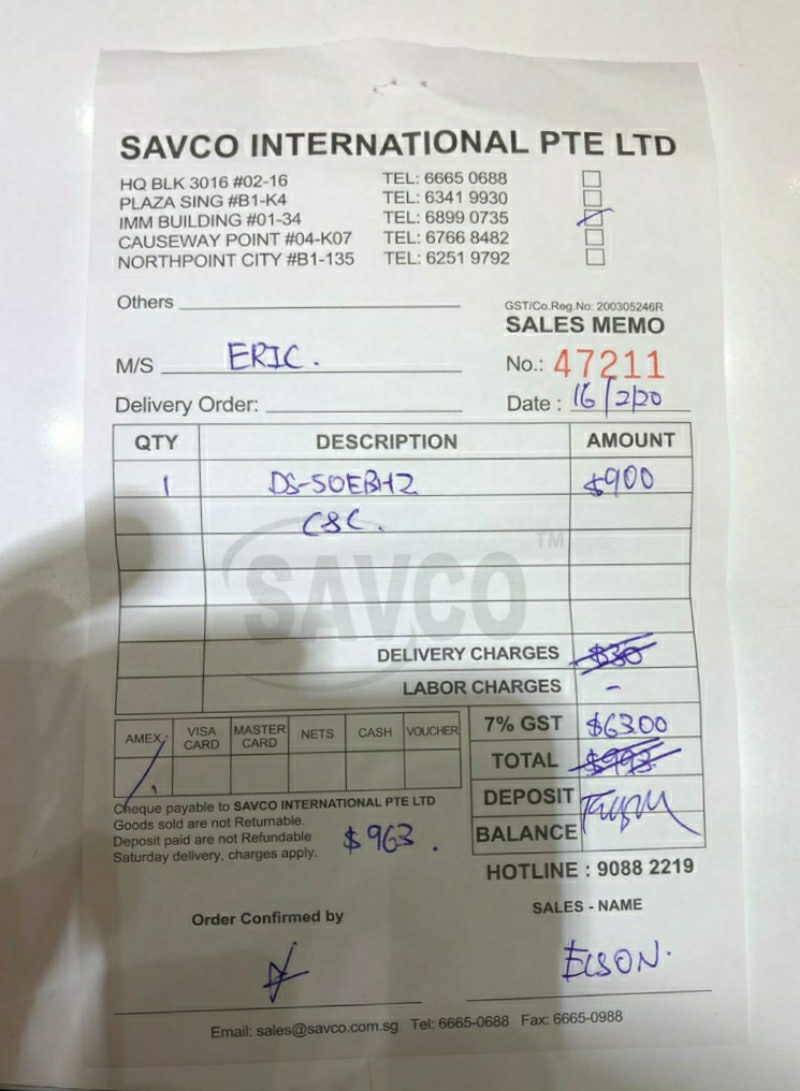 SAVCO INTERNATIONAL PTE LTD
HQ BLK 3016 #02-16 TEL: 6665 0688
PLAZA SING #B1-K4 TEL: 6341 9930
IMM BUILDING #01-34 TEL: 6899 0735
CAUSEWAY POINT #04-K07 TEL: 6766 8482
NORTHPOINT CITY #B1-135 TEL: 6251 9792
Others
GST/Co.Reg.No: 200305246R
SALES MEMO
M/S ERIC.
No.: 47211
Delivery Order:
Date : 16/2/20
QTY DESCRIPTION AMOUNT
1 DS-50EBH2 $900
C&C.
SAVCO TM
DELIVERY CHARGES $30
LABOR CHARGES -
7% GST $63.00
TOTAL $993.
DEPOSIT
BALANCE
AMEX VISA CARD MASTER CARD NETS CASH VOUCHER
Cheque payable to SAVCO INTERNATIONAL PTE LTD
Goods sold are not Returnable.
Deposit paid are not Refundable
Saturday delivery, charges apply.
$963.
HOTLINE : 9088 2219
Order Confirmed by
SALES - NAME
ELSON.
Email: sales@savco.com.sg Tel: 6665-0688 Fax: 6665-0988